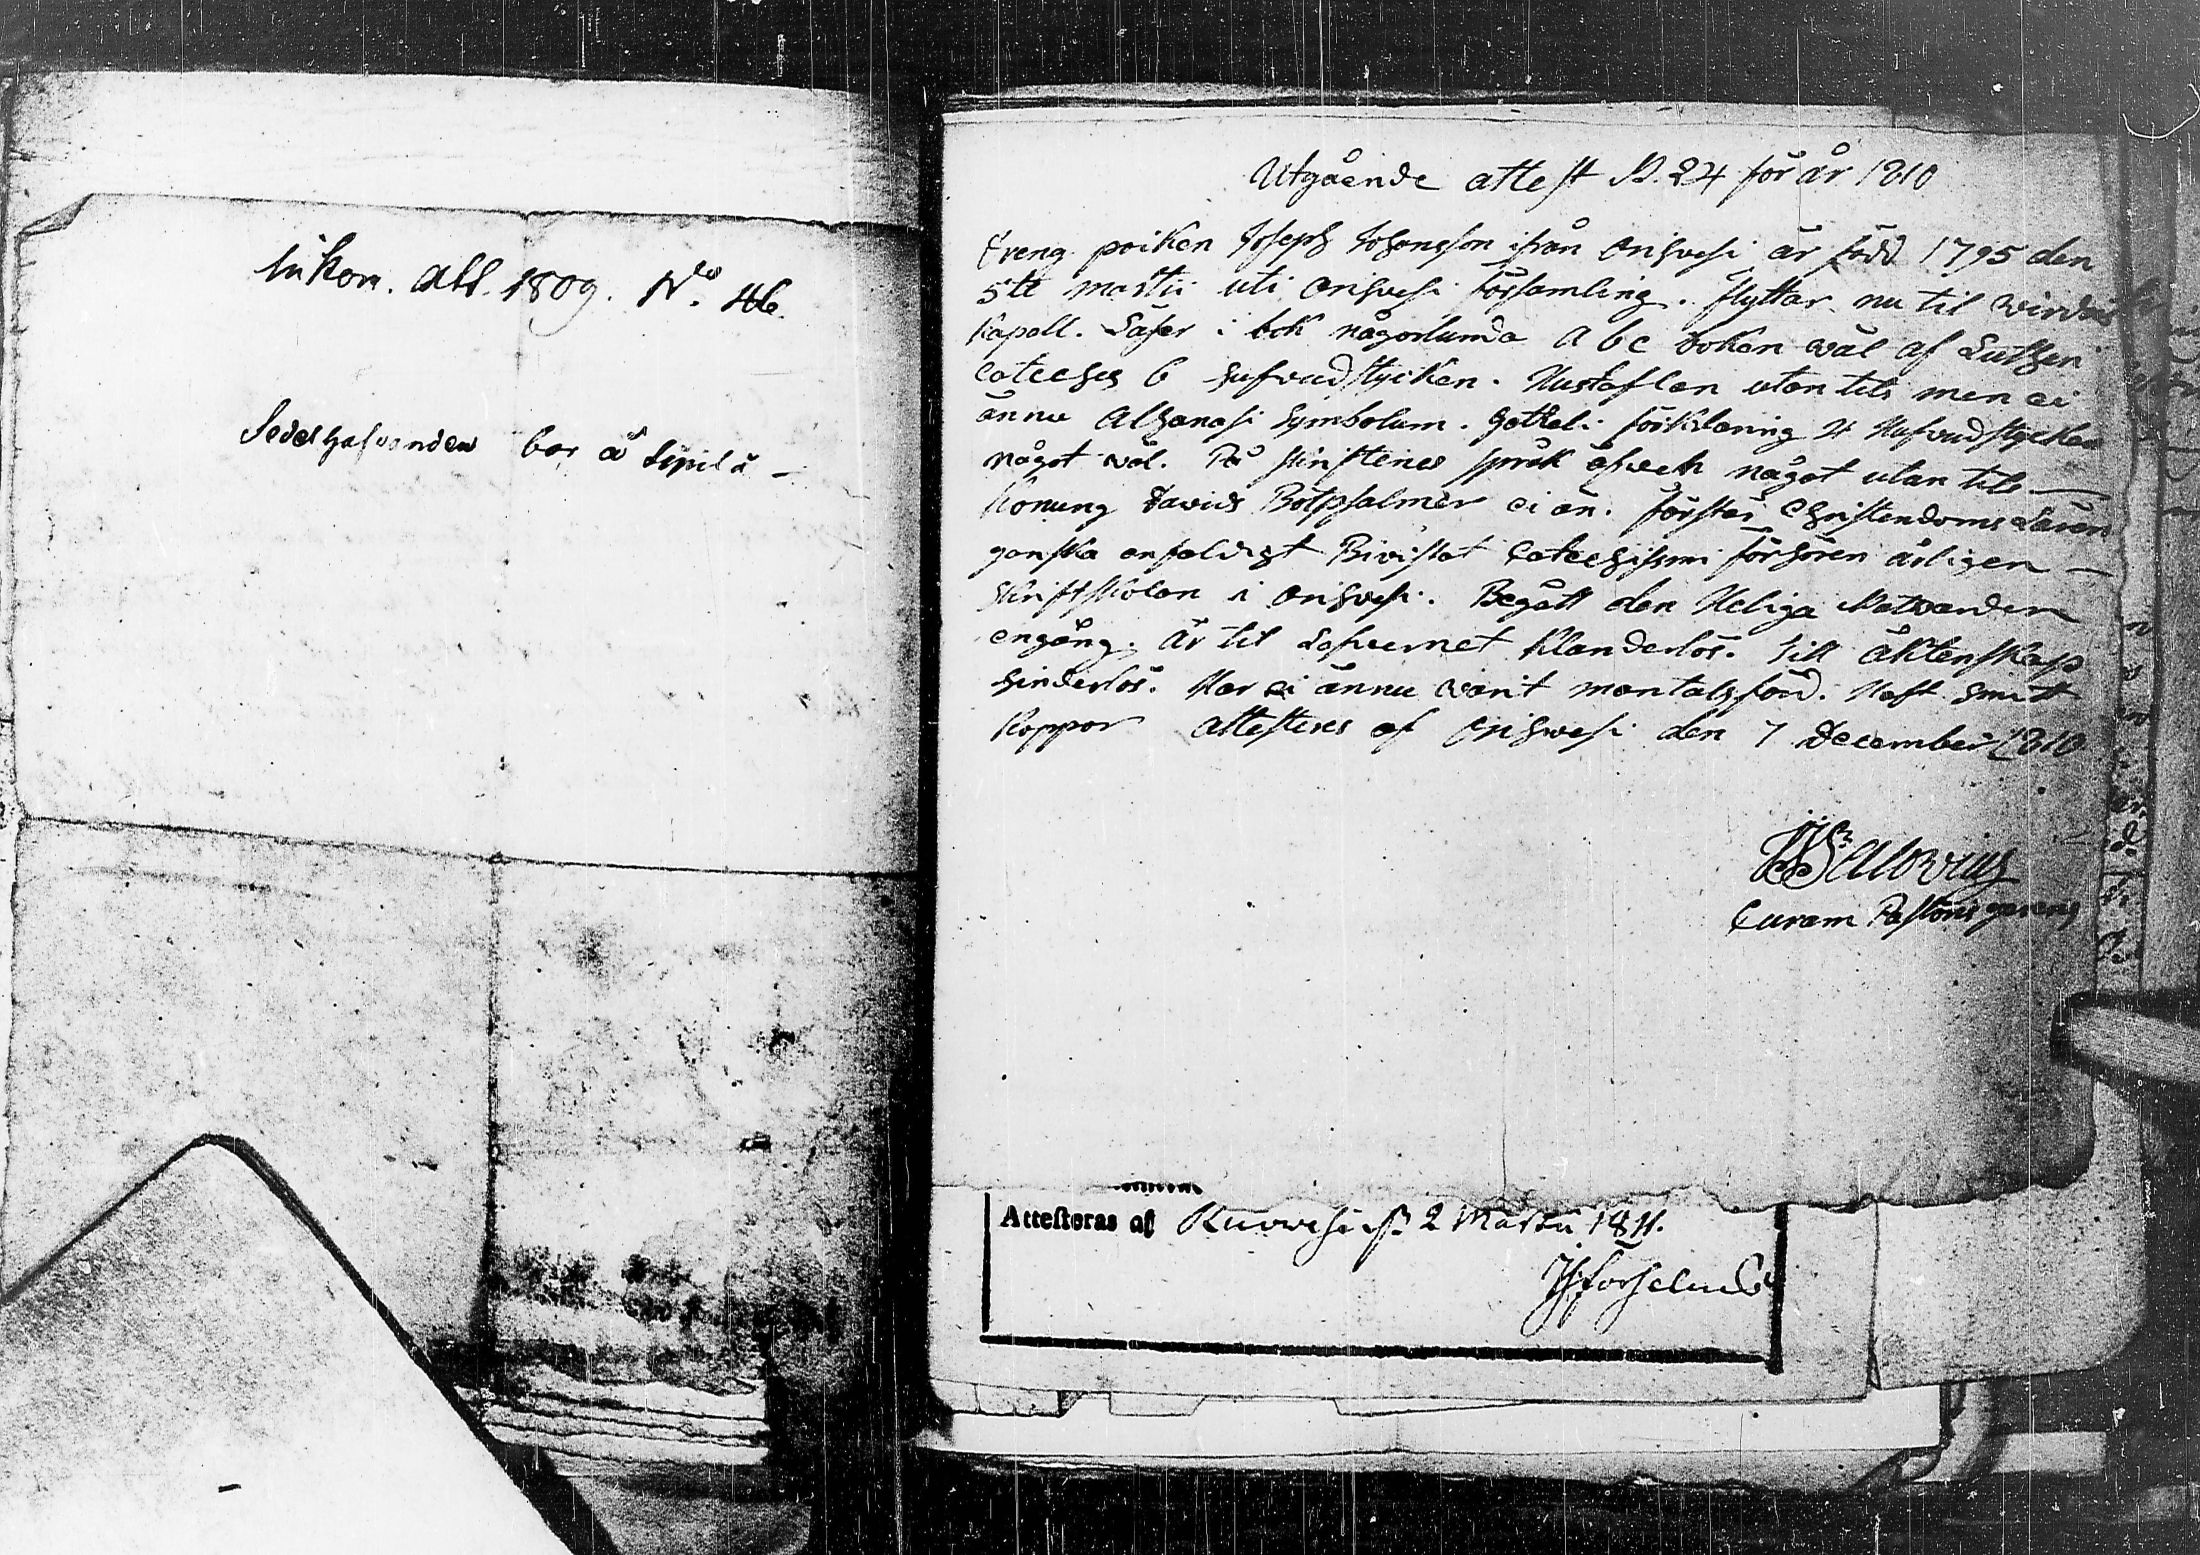 Inkom. att. 1809. No. 46.
Sedelhafvanden bor å Sipilä –
Utgående attest N. 24 för år 1810
Dreng poiken Joseph Johansson ifrån Orihvesi är född 1795 den
5te martii uti Orihvesi församling. flyttar nu til Wirdois
Kapell. Läser i bok någorlunda A b c boken wäl af Lutheri
Catechis 6 hufvudstycken. Hustaflan utan tils men ei
ännu Athanasi Symbolum. förklaring 4 Hufvudstycken
något wäl. På skriftenes språk äfwen något utan tils –
Konung Davids Botpsalmer ei än. förstår Christendoms Läran
ganska enfaldigt Bivistat Catechismi förhören årligen –
Skriftskolan i Orihvesi. Begått den Heliga Nattwarden
engång. Är til Lefvernet Klanderlös. till äktenskap
hinderlös. Har ei ännu warit mantalsförd. Haft
Koppor attesteres af Orihwesi den 7 December 1810
Curam Pastoris gerens
Attesteras af Ruovesi d. 2 Martii 1811.